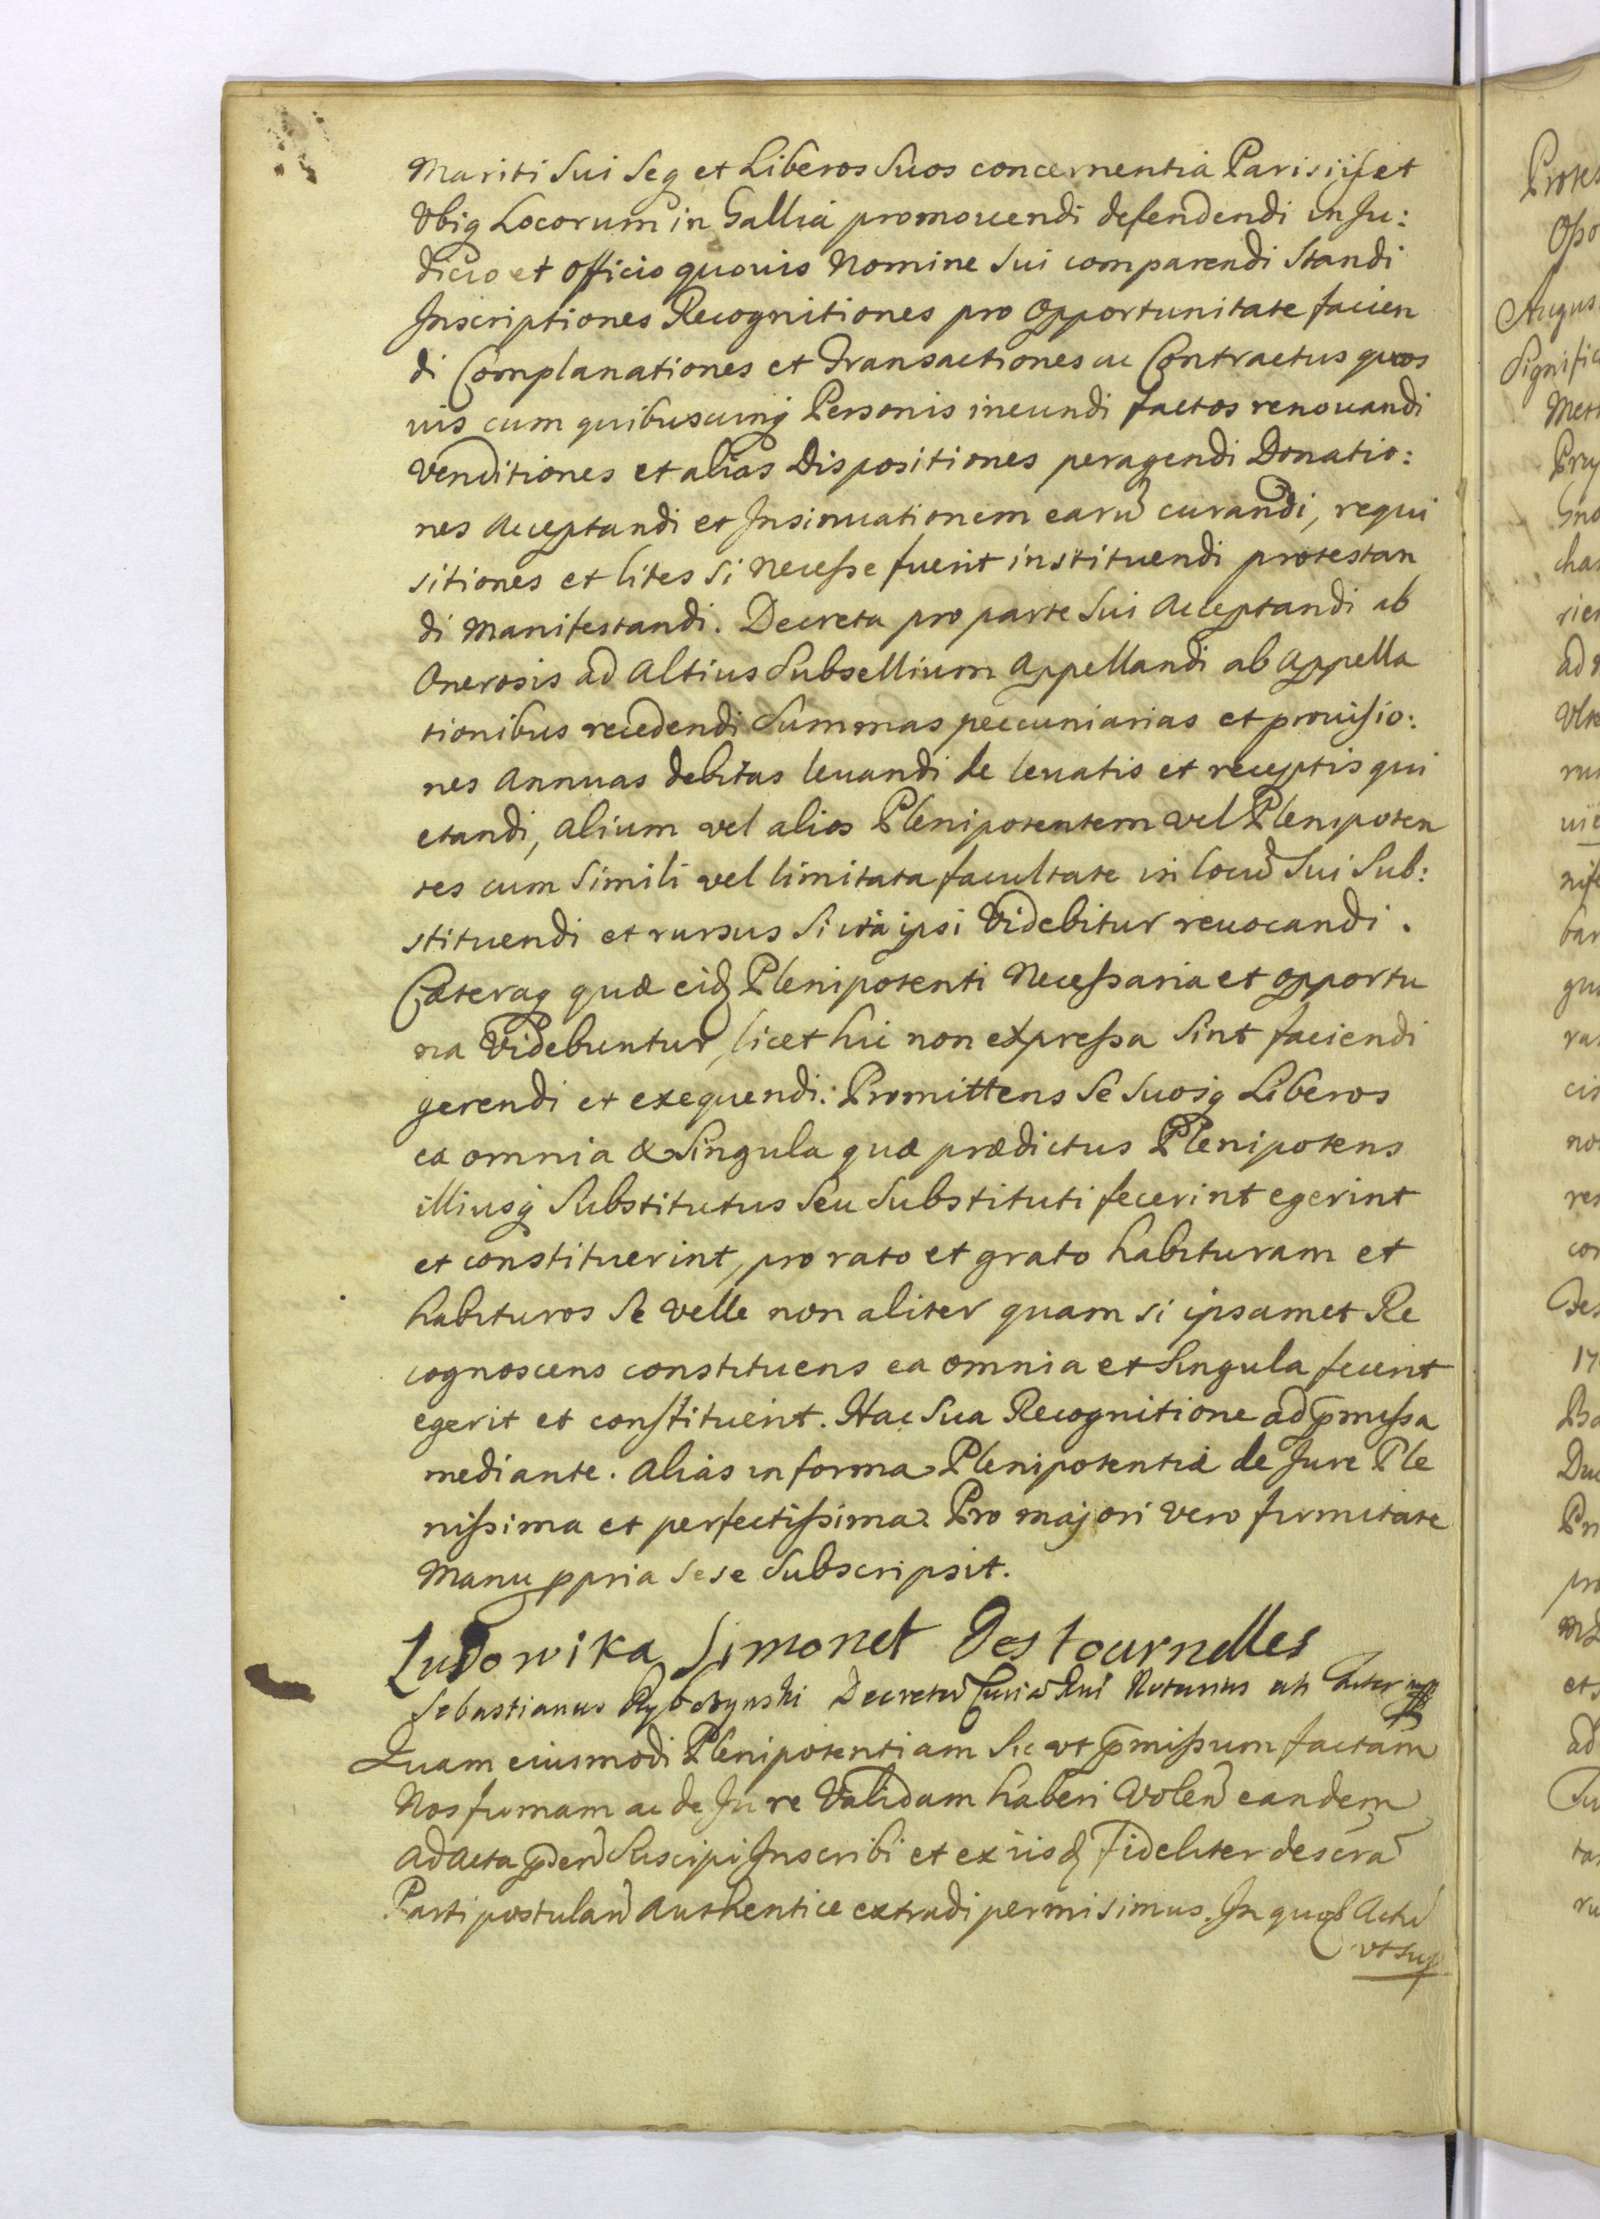 Mariti Sui Seq et Liberos Suos concernentia Parisijs et
Vbiq Locorum in Gallia promouendi defendendi in Ju:
dicio et Officio quouis Nomine Sui comparendi Standi
Inscriptiones Recognitiones pro Opportunitate facien
di Complanationes et Transactiones ac Contractus quos
uis cum quibuscunq Personis ineundi factos renouandi
Venditiones et alias Dispositiones peragendi Donatio:
nes Acceptandi et Insinuationem earũ curandi, requi
sitiones et lites Si Necesse fuerit instituendi protestan
di Manifestandi. Decreta pro parte Sui Acceptandi ab
Onerosis ad Altius Subsellium Appellandi ab Appella
tionibus recedendi Summas peccuniarias et prouisio:
nes Annuas debitas leuandi de leuatis et receptis qui
etandi, Alium vel alios Plenipotentem vel Plenipoten
tes cum Simili vel limitata facultate in locũ Sui Sub:
stituendi et rursus Si ita ipsi Videbitur reuocandi.
Cæteraq quæ eidẽ Plenipotenti Necessaria et opportu
na Videbuntur, licet hic non expressa Sint faciendi
gerendi et exequendi: Promittens Se Suosq Liberos
ea omnia & Singula quæ prædictus Plenipotens
illiusq Substitutus Seu Substituti fecerint egerint
et constituerint, pro rato et grato habituram et
habituros Se Velle non aliter quam si ipsamet Re
cognoscens constituens ea omnia et Singula fecerit
egerit et constituerit. Hac Sua Recognitione ad p̃missa
mediante. Alias in forma Plenipotentiæ de Jure Ple
nissima et perfectissima. Pro majori vero firmitate
Manu ppria Sese Subscripsit.
Ludowika Simonet Des tournelles
Sebastianus Rybczynski Decretorũ Curiæ Notarius uti Actor
Quam eiusmodi Plenipotentiam Sic vt p̃missum factam
Nos firmam ac de Jure Validam haberi Volen̄ eandem
ad Acta p̃den̄ Suscipi Inscribi et ex iisdẽ Fideliter descra
Parti postulan̄ Authentice extradi permisimus. In quoř Actũ
vt sup